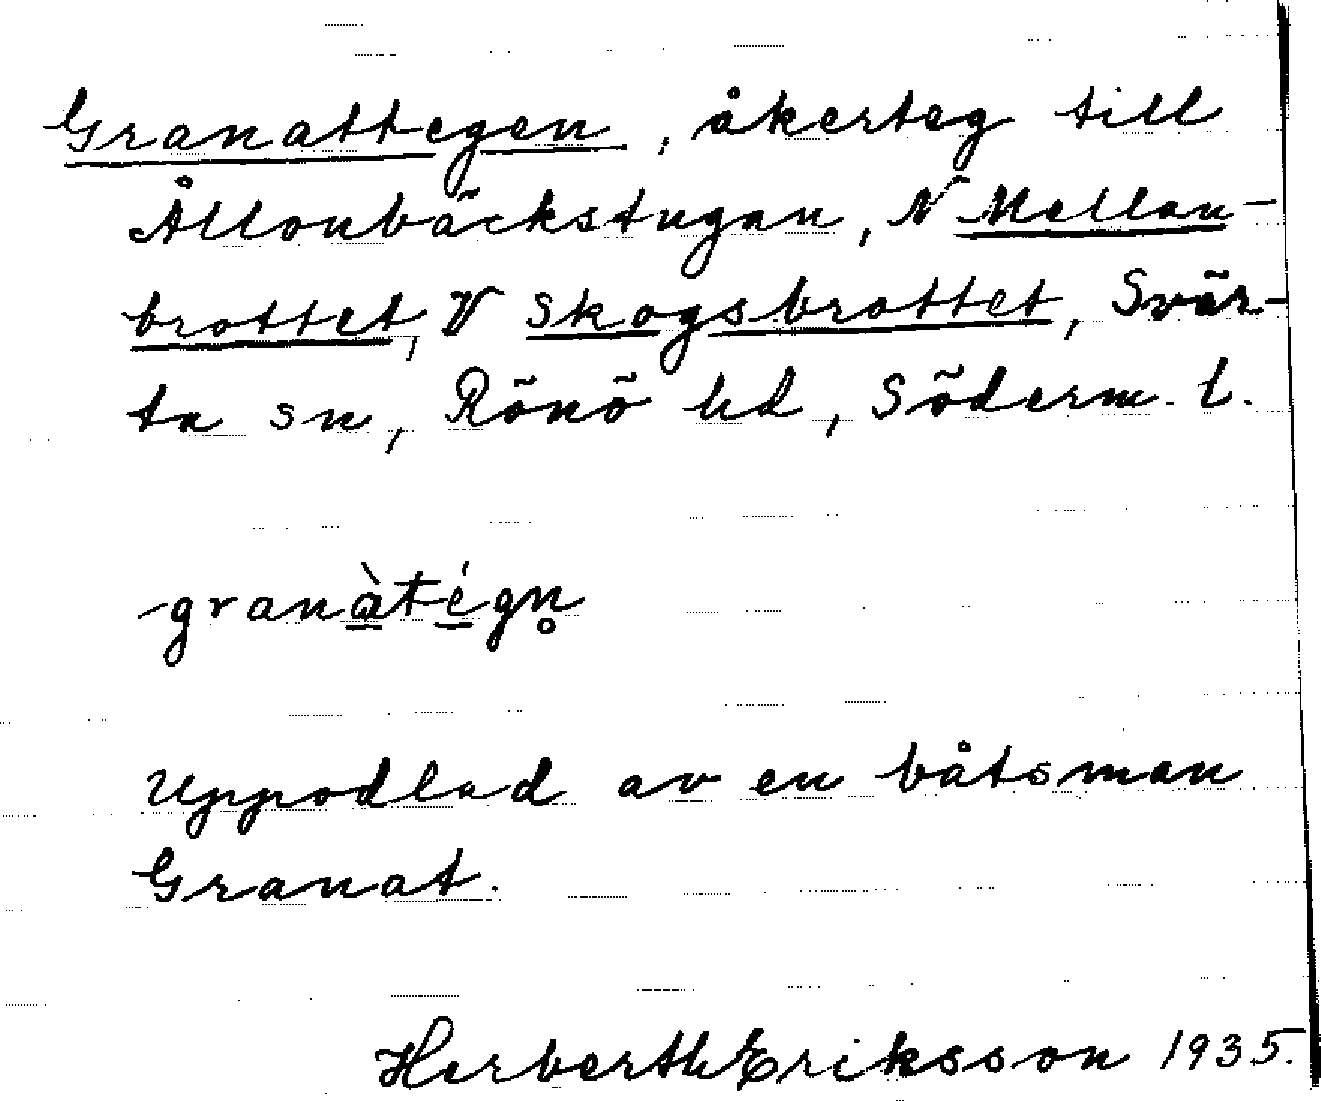 Granattegen, åkerteg till
Ållonbäckstugan, N Mellan-
brottet, V Skogsbrottet, Svär-
ta sn, Rönö hd, Söderm. l.
granàtégn̥
Uppodlad av en båtsman
Granat.
Herberth Eriksson 1935.